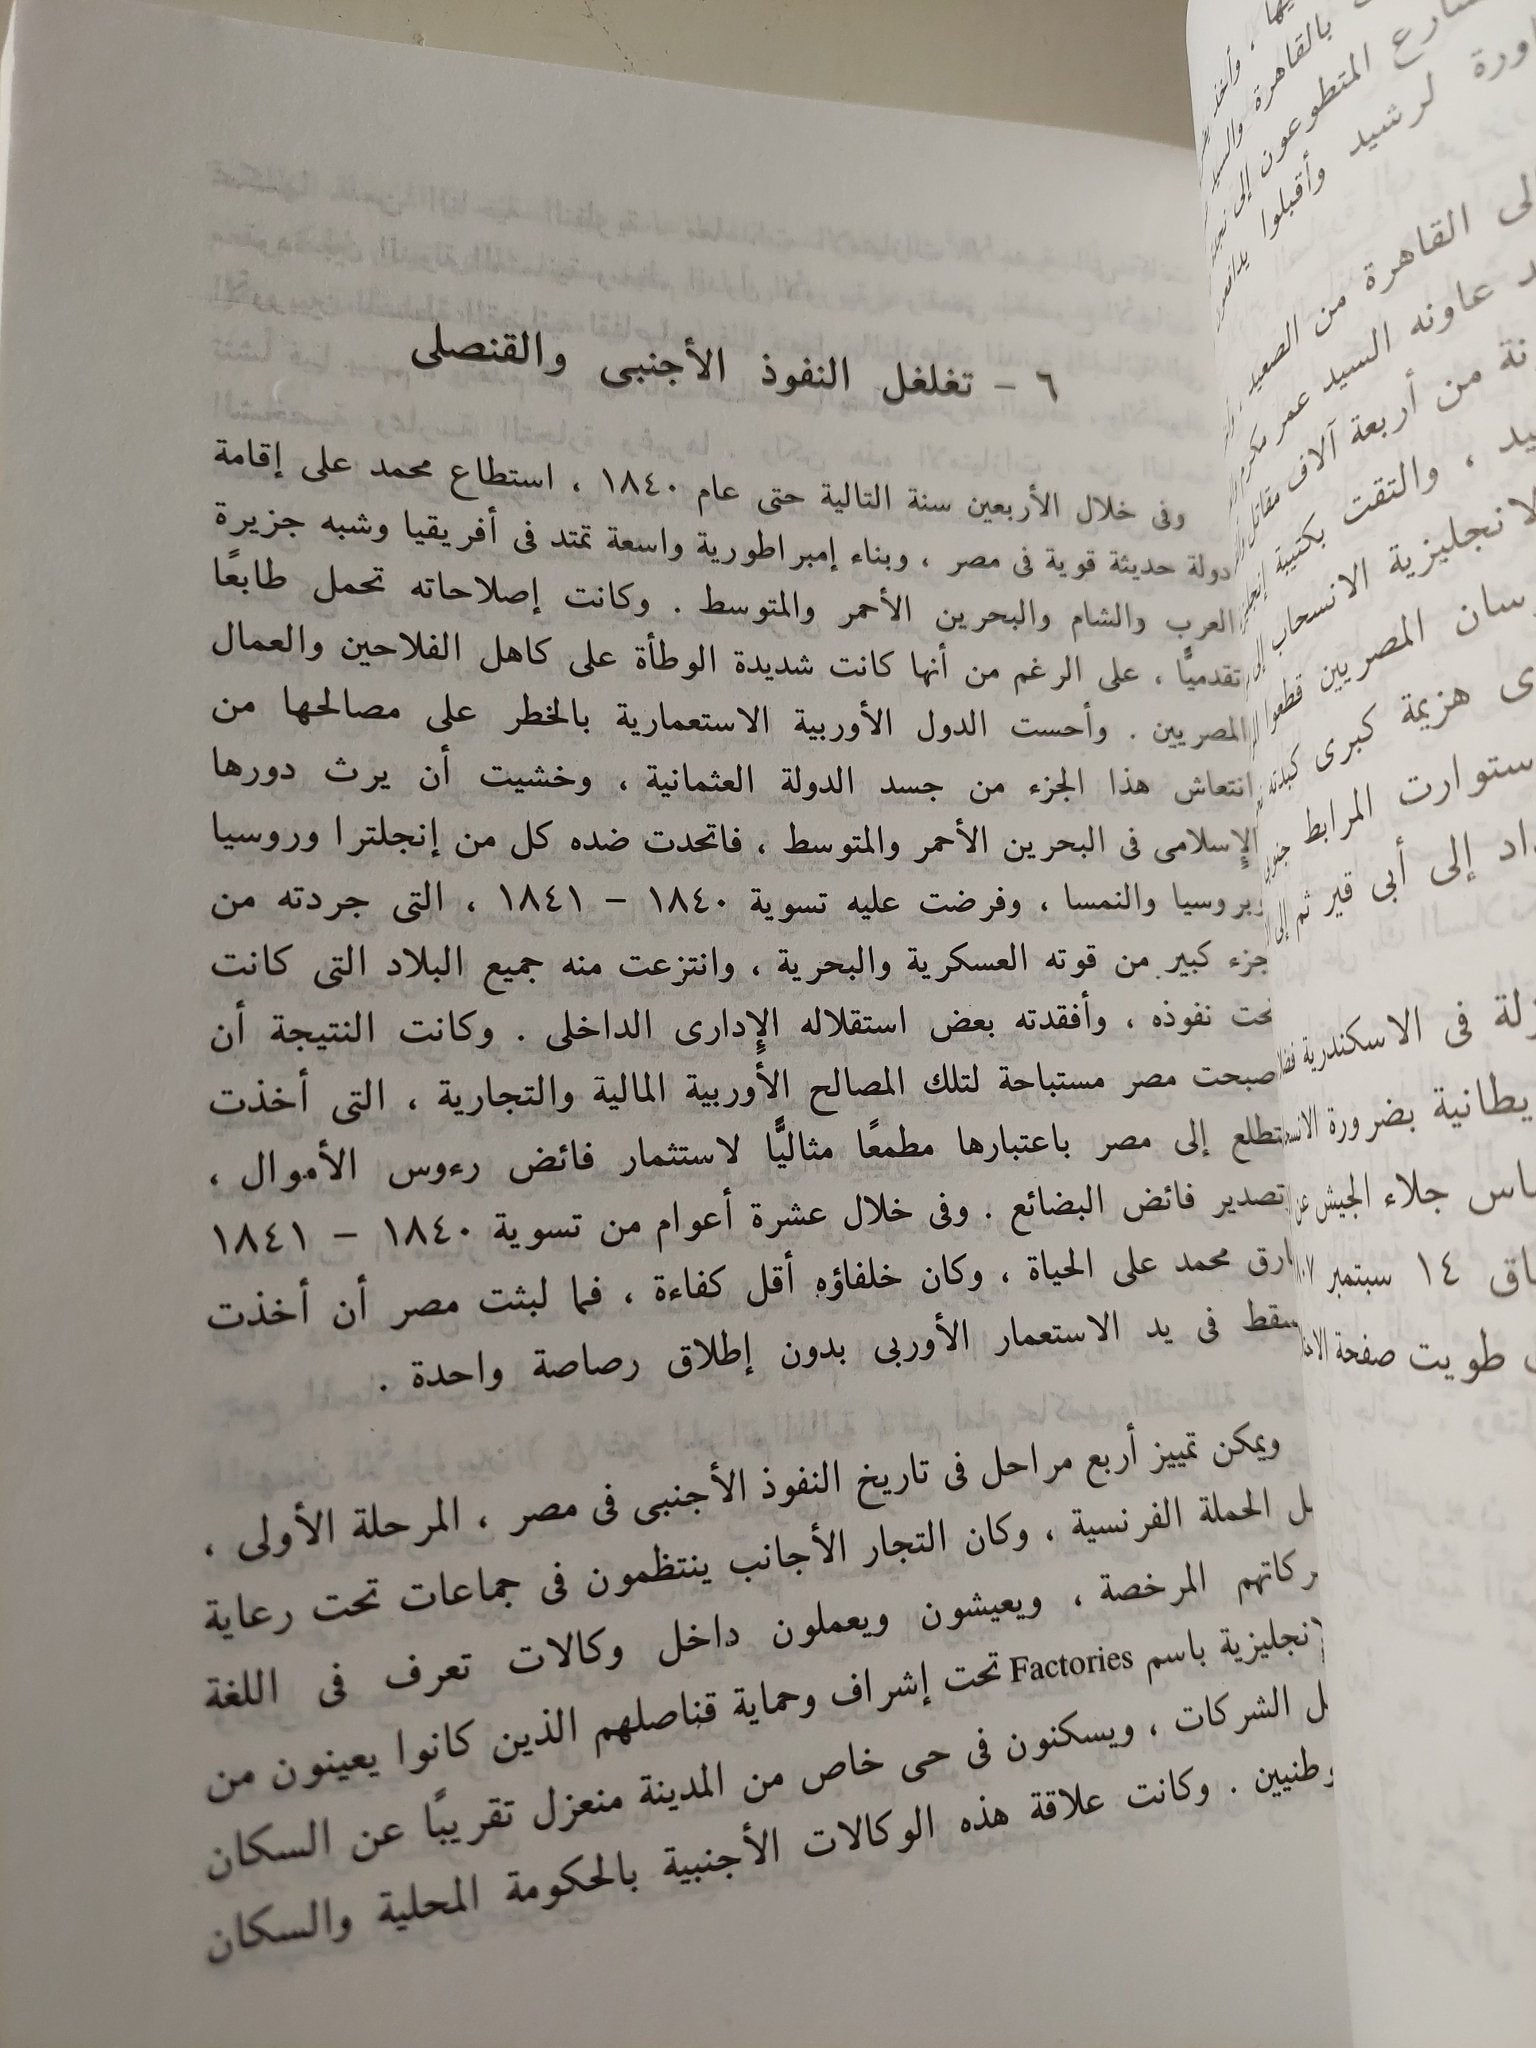 ٦ - تغلغل النفوذ الأجنبى والقنصلى
وفى خلال الأربعين سنة التالية حتى عام ١٨٤٠ ، استطاع محمد على إقامة
دولة حديثة قوية فى مصر ، وبناء إمبراطورية واسعة تمتد فى أفريقيا وشبه جزيرة
العرب والشام والبحرين الأحمر والمتوسط . وكانت إصلاحاته تحمل طابعًا
تقدميًّا ، على الرغم من أنها كانت شديدة الوطأة على كاهل الفلاحين والعمال
المصريين . وأحست الدول الأوربية الاستعمارية بالخطر على مصالحها من
انتعاش هذا الجزء من جسد الدولة العثمانية ، وخشيت أن يرث دورها
الإسلامى فى البحرين الأحمر والمتوسط ، فاتحدت ضده كل من إنجلترا وروسيا
وبروسيا والنمسا ، وفرضت عليه تسوية ١٨٤٠ - ١٨٤١ ، التى جردته من
جزء كبير من قوته العسكرية والبحرية ، وانتزعت منه جميع البلاد التى كانت
تحت نفوذه ، وأفقدته بعض استقلاله الإدارى الداخلى . وكانت النتيجة أن
صبحت مصر مستباحة لتلك المصالح الأوربية المالية والتجارية ، التى أخذت
تتطلع إلى مصر باعتبارها مطمعًا مثاليًّا لاستثمار فائض رءوس الأموال ،
تصدير فائض البضائع . وفى خلال عشرة أعوام من تسوية ١٨٤٠ - ١٨٤١
ارق محمد على الحياة ، وكان خلفاؤه أقل كفاءة ، فما لبثت مصر أن أخذت
سقط فى يد الاستعمار الأوربى بدون إطلاق رصاصة واحدة .
ويمكن تمييز أربع مراحل فى تاريخ النفوذ الأجنبى فى مصر ، المرحلة الأولى ،
ل الحملة الفرنسية ، وكان التجار الأجانب ينتظمون فى جماعات تحت رعاية
ركاتهم المرخصة ، ويعيشون ويعملون داخل وكالات تعرف فى اللغة
لإنجليزية باسم Factories تحت إشراف وحماية قناصلهم الذين كانوا يعينون من
ل الشركات ، ويسكنون فى حى خاص من المدينة منعزل تقريبًا عن السكان
وطنيين . وكانت علاقة هذه الوكالات الأجنبية بالحكومة المحلية والسكان
بالقاهرة
المتطوعون إلى
لرشيد وأقبلوا
القاهرة من الصعيد
عاونه السيد عمر مكرم
من أربعة آلاف مقاتل
، والتقت بكتيبة
الانجليزية الانسحاب إلى
المصريين قطعوا
هزيمة كبرى
ستوارت المرابط
إلى أبى قير ثم إلى
فى الاسكندرية
يطانية بضرورة
جلاء الجيش عن
١٤ سبتمبر
طويت صفحة